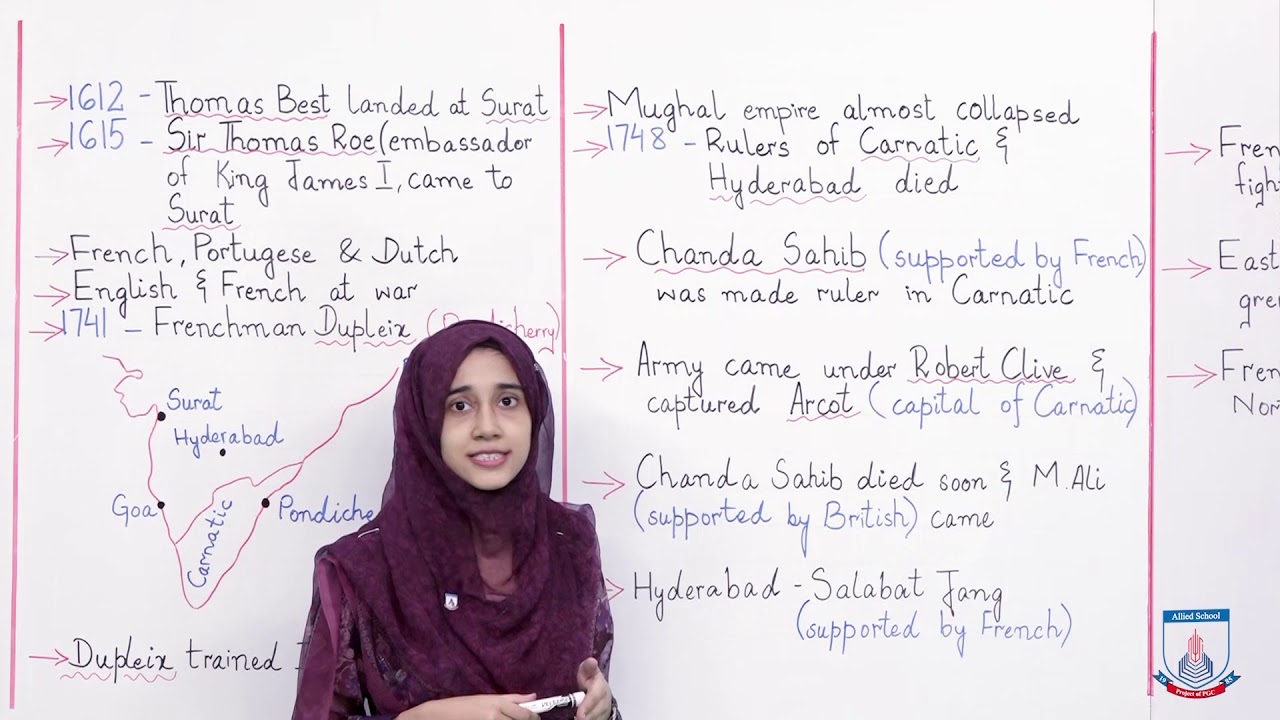 →1612 - Thomas Best landed at Surat
→1615 - Sir Thomas Roe (embassador
of King James I, came to
Surat
→French, Portugese & Dutch
→English & French at war
→1741 - Frenchman Dupleix
Surat
Hyderabad
Goa
Carnatic
Pondiche
→Dupleix trained
→Mughal empire almost collapsed
→1748 - Rulers of Carnatic &
Hyderabad died
→Chanda Sahib (supported by French)
was made ruler in Carnatic
→Army came under Robert Clive &
captured Arcot (capital of Carnatic)
→Chanda Sahib died soon & M. Ali
(supported by British) came
→Hyderabad - Salabat Jang
(supported by French)
→Fren
figh
→East
gre
→Fren
Nor
Allied School
19 85
Project of PGC